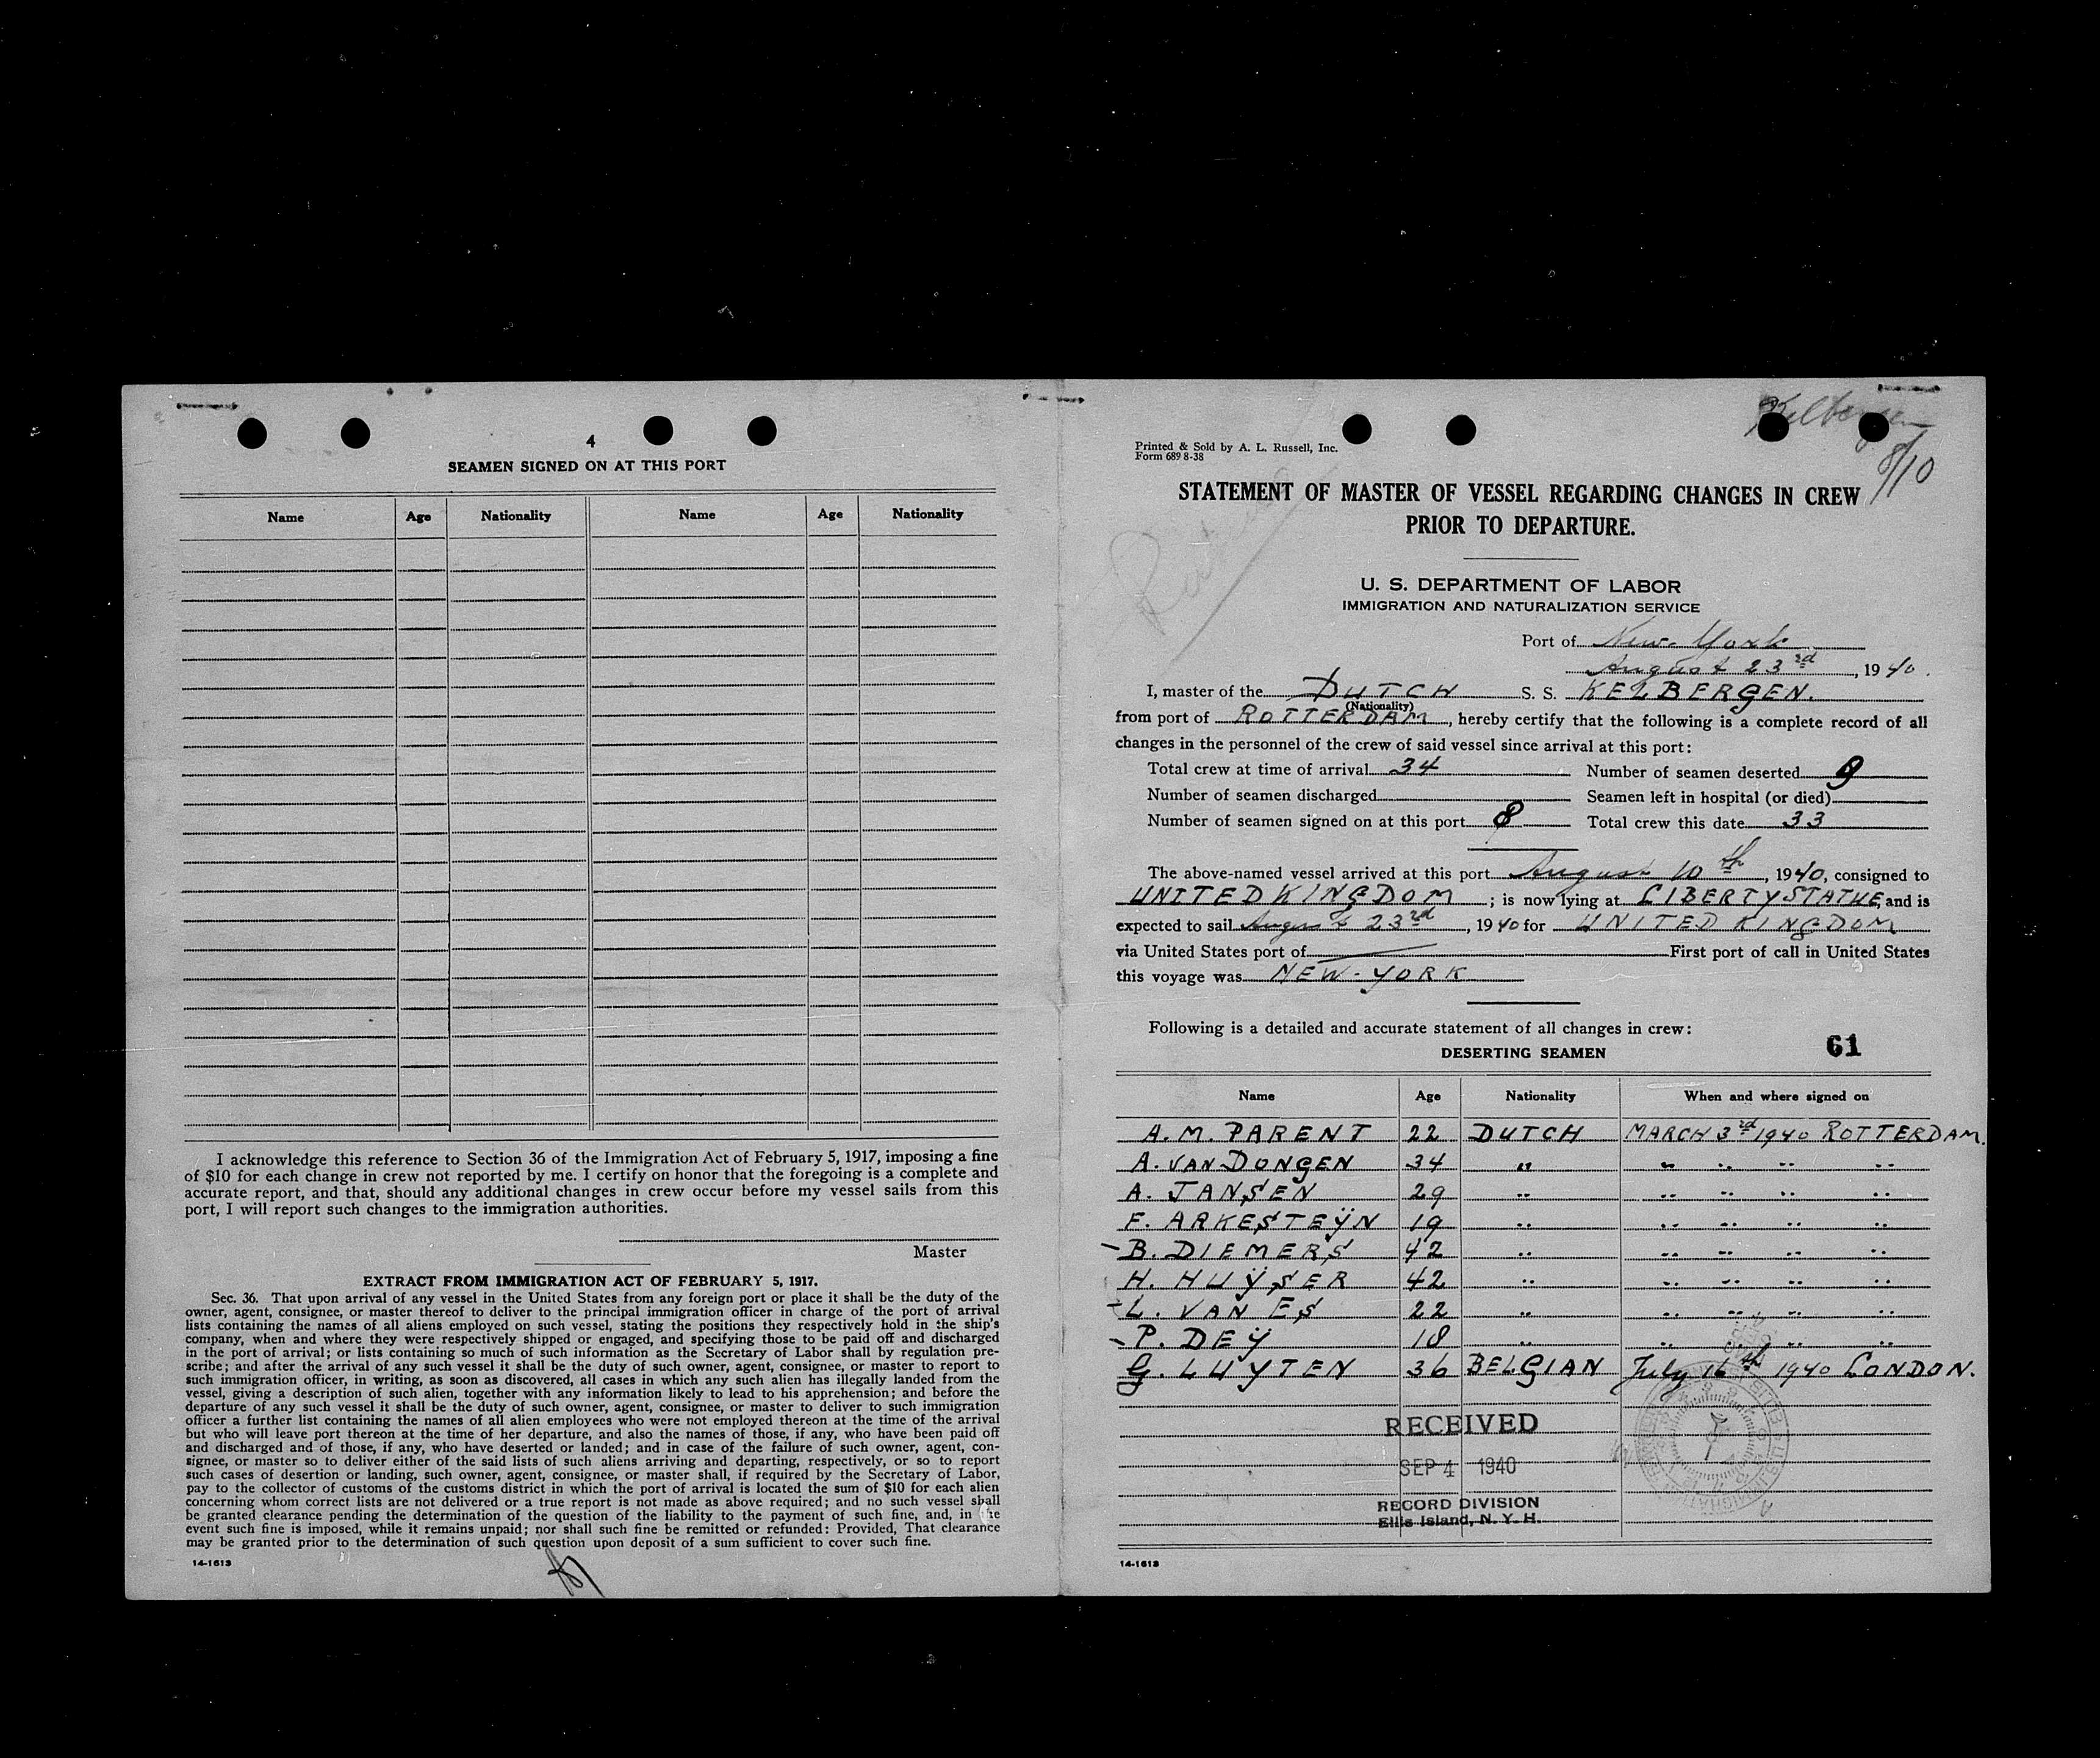 4
SEAMEN SIGNED ON AT THIS PORT
Name Age Nationality Name Age Nationality
I acknowledge this reference to Section 36 of the Immigration Act of February 5, 1917, imposing a fine
of $10 for each change in crew not reported by me. I certify on honor that the foregoing is a complete and
accurate report, and that, should any additional changes in crew occur before my vessel sails from this
port, I will report such changes to the immigration authorities.
Master
EXTRACT FROM IMMIGRATION ACT OF FEBRUARY 5, 1917.
Sec. 36. That upon arrival of any vessel in the United States from any foreign port or place it shall be the duty of the
owner, agent, consignee, or master thereof to deliver to the principal immigration officer in charge of the port of arrival
lists containing the names of all aliens employed on such vessel, stating the positions they respectively hold in the ship's
company, when and where they were respectively shipped or engaged, and specifying those to be paid off and discharged
in the port of arrival; or lists containing so much of such information as the Secretary of Labor shall by regulation pre-
scribe; and after the arrival of any such vessel it shall be the duty of such owner, agent, consignee, or master to report to
such immigration officer, in writing, as soon as discovered, all cases in which any such alien has illegally landed from the
vessel, giving a description of such alien, together with any information likely to lead to his apprehension; and before the
departure of any such vessel it shall be the duty of such owner, agent, consignee, or master to deliver to such immigration
officer a further list containing the names of all alien employees who were not employed thereon at the time of the arrival
but who will leave port thereon at the time of her departure, and also the names of those, if any, who have been paid off
and discharged and of those, if any, who have deserted or landed; and in case of the failure of such owner, agent, con-
signee, or master so to deliver either of the said lists of such aliens arriving and departing, respectively, or so to report
such cases of desertion or landing, such owner, agent, consignee, or master shall, if required by the Secretary of Labor,
pay to the collector of customs of the customs district in which the port of arrival is located the sum of $10 for each alien
concerning whom correct lists are not delivered or a true report is not made as above required; and no such vessel shall
be granted clearance pending the determination of the question of the liability to the payment of such fine, and, in the
event such fine is imposed, while it remains unpaid; nor shall such fine be remitted or refunded: Provided, That clearance
may be granted prior to the determination of such question upon deposit of a sum sufficient to cover such fine.
14-1613
Kelbergen
8/10
Printed & Sold by A. L. Russell, Inc.
Form 689 8-38
STATEMENT OF MASTER OF VESSEL REGARDING CHANGES IN CREW
PRIOR TO DEPARTURE.
U. S. DEPARTMENT OF LABOR
IMMIGRATION AND NATURALIZATION SERVICE
Port of New-York
August 23rd, 1940.
I, master of the DUTCH S. S. KELBERGEN.
(Nationality)
from port of ROTTERDAM, hereby certify that the following is a complete record of all
changes in the personnel of the crew of said vessel since arrival at this port:
Total crew at time of arrival 34 Number of seamen deserted 9
Number of seamen discharged Seamen left in hospital (or died)
Number of seamen signed on at this port 8 Total crew this date 33
The above-named vessel arrived at this port August 10th, 1940, consigned to
UNITED KINGDOM; is now lying at LIBERTYSTATUE, and is
expected to sail August 23rd, 1940 for UNITED KINGDOM
via United States port of First port of call in United States
this voyage was NEW-YORK
Following is a detailed and accurate statement of all changes in crew:
DESERTING SEAMEN 61
Name Age Nationality When and where signed on
A. M. PARENT 22 DUTCH MARCH 3rd 1940 ROTTERDAM.
A. VAN DONGEN 34 " " " " "
A. JANSEN 29 " " " " "
F. ARKESTEŸN 19 " " " " "
- B. DIEMERS 42 " " " " "
H. HUŸSER 42 " " " " "
- L. VAN ES 22 " " " " "
- P. DEŸ 18 " " " " "
G. LUYTEN 36 BELGIAN July 16th 1940 LONDON.
RECEIVED
SEP 4 1940
RECORD DIVISION
Ellis Island, N. Y. H.
14-1613